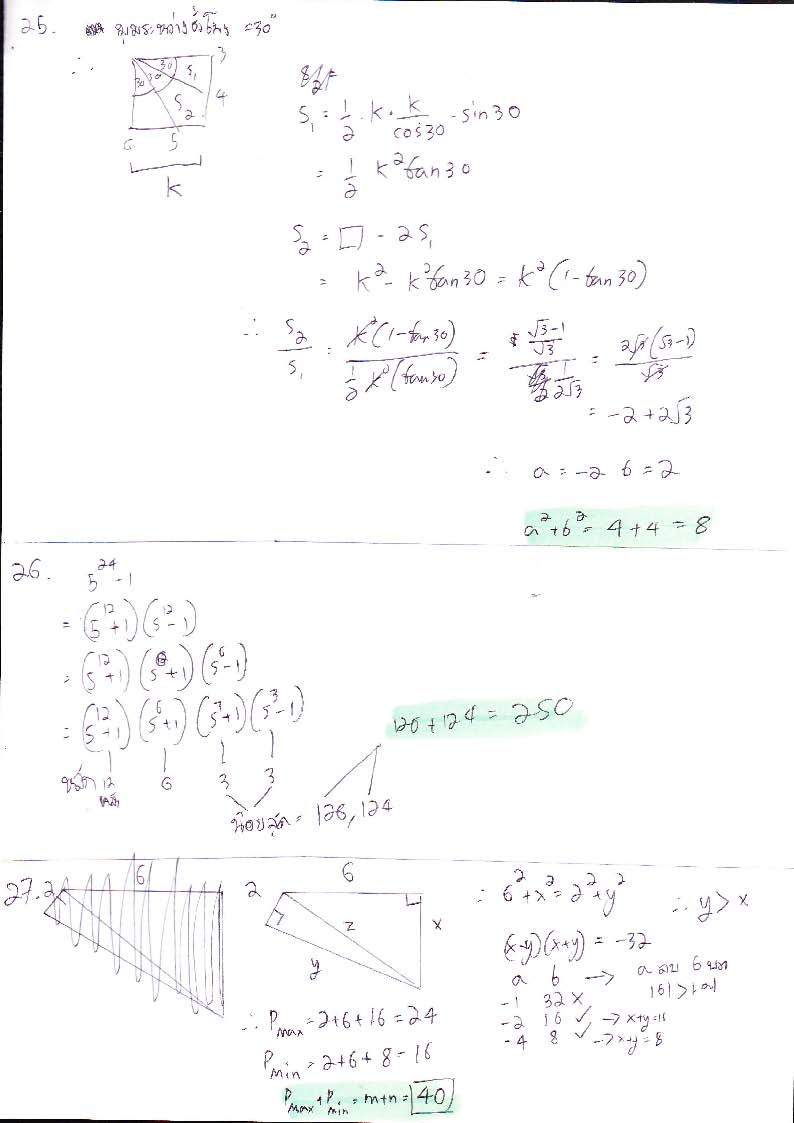 25. มุมระหว่างชั่วโมง = 30°
∴
30 30 30 S₁ S₂ 3 4 5 6 k
S₁ = 1/2 · k · k/cos30 · sin30
= 1/2 k² tan30
S₂ = □ - 2S₁
= k² - k² tan30 = k²(1 - tan30)
∴ S₂/S₁ = k²(1 - tan30) / (1/2 k²(tan30)) = ((√3-1)/√3) / (1/(2√3)) = 2√3(√3-1)/√3
= -2 + 2√3
∴ a = -2 b = 2
a² + b² = 4 + 4 = 8
26. 5²⁴ - 1
= (5¹² + 1)(5¹² - 1)
= (5¹² + 1)(5⁶ + 1)(5⁶ - 1)
= (5¹² + 1)(5⁶ + 1)(5³ + 1)(5³ - 1)
12 6 3 3
น้อยสุด = 126, 124
126 + 124 = 250
27. 2 6
2 6 x y z
∴ 6² + x² = 2² + y² ∴ y > x
(x-y)(x+y) = -32
a b → a ลบ b บวก
|b| > |a|
-1 32 ×
-2 16 ✓ → x+y = 16
-4 8 ✓ → x+y = 8
∴ Pmax = 2+6+16 = 24
Pmin = 2+6+8 = 16
Pmax + Pmin = m+n = 40